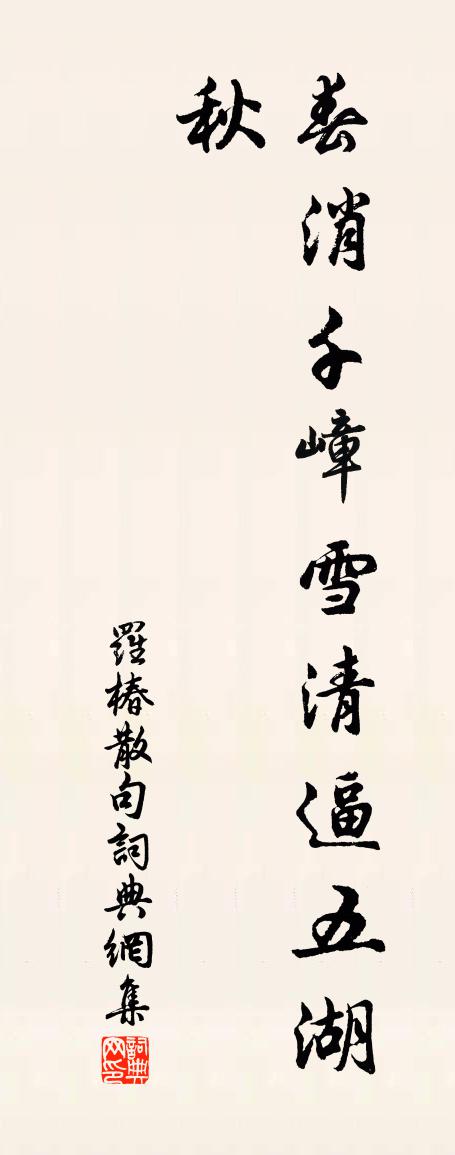 春消千嶂雪清逼五湖
秋
羅椿散句詞典網集
詞典网印